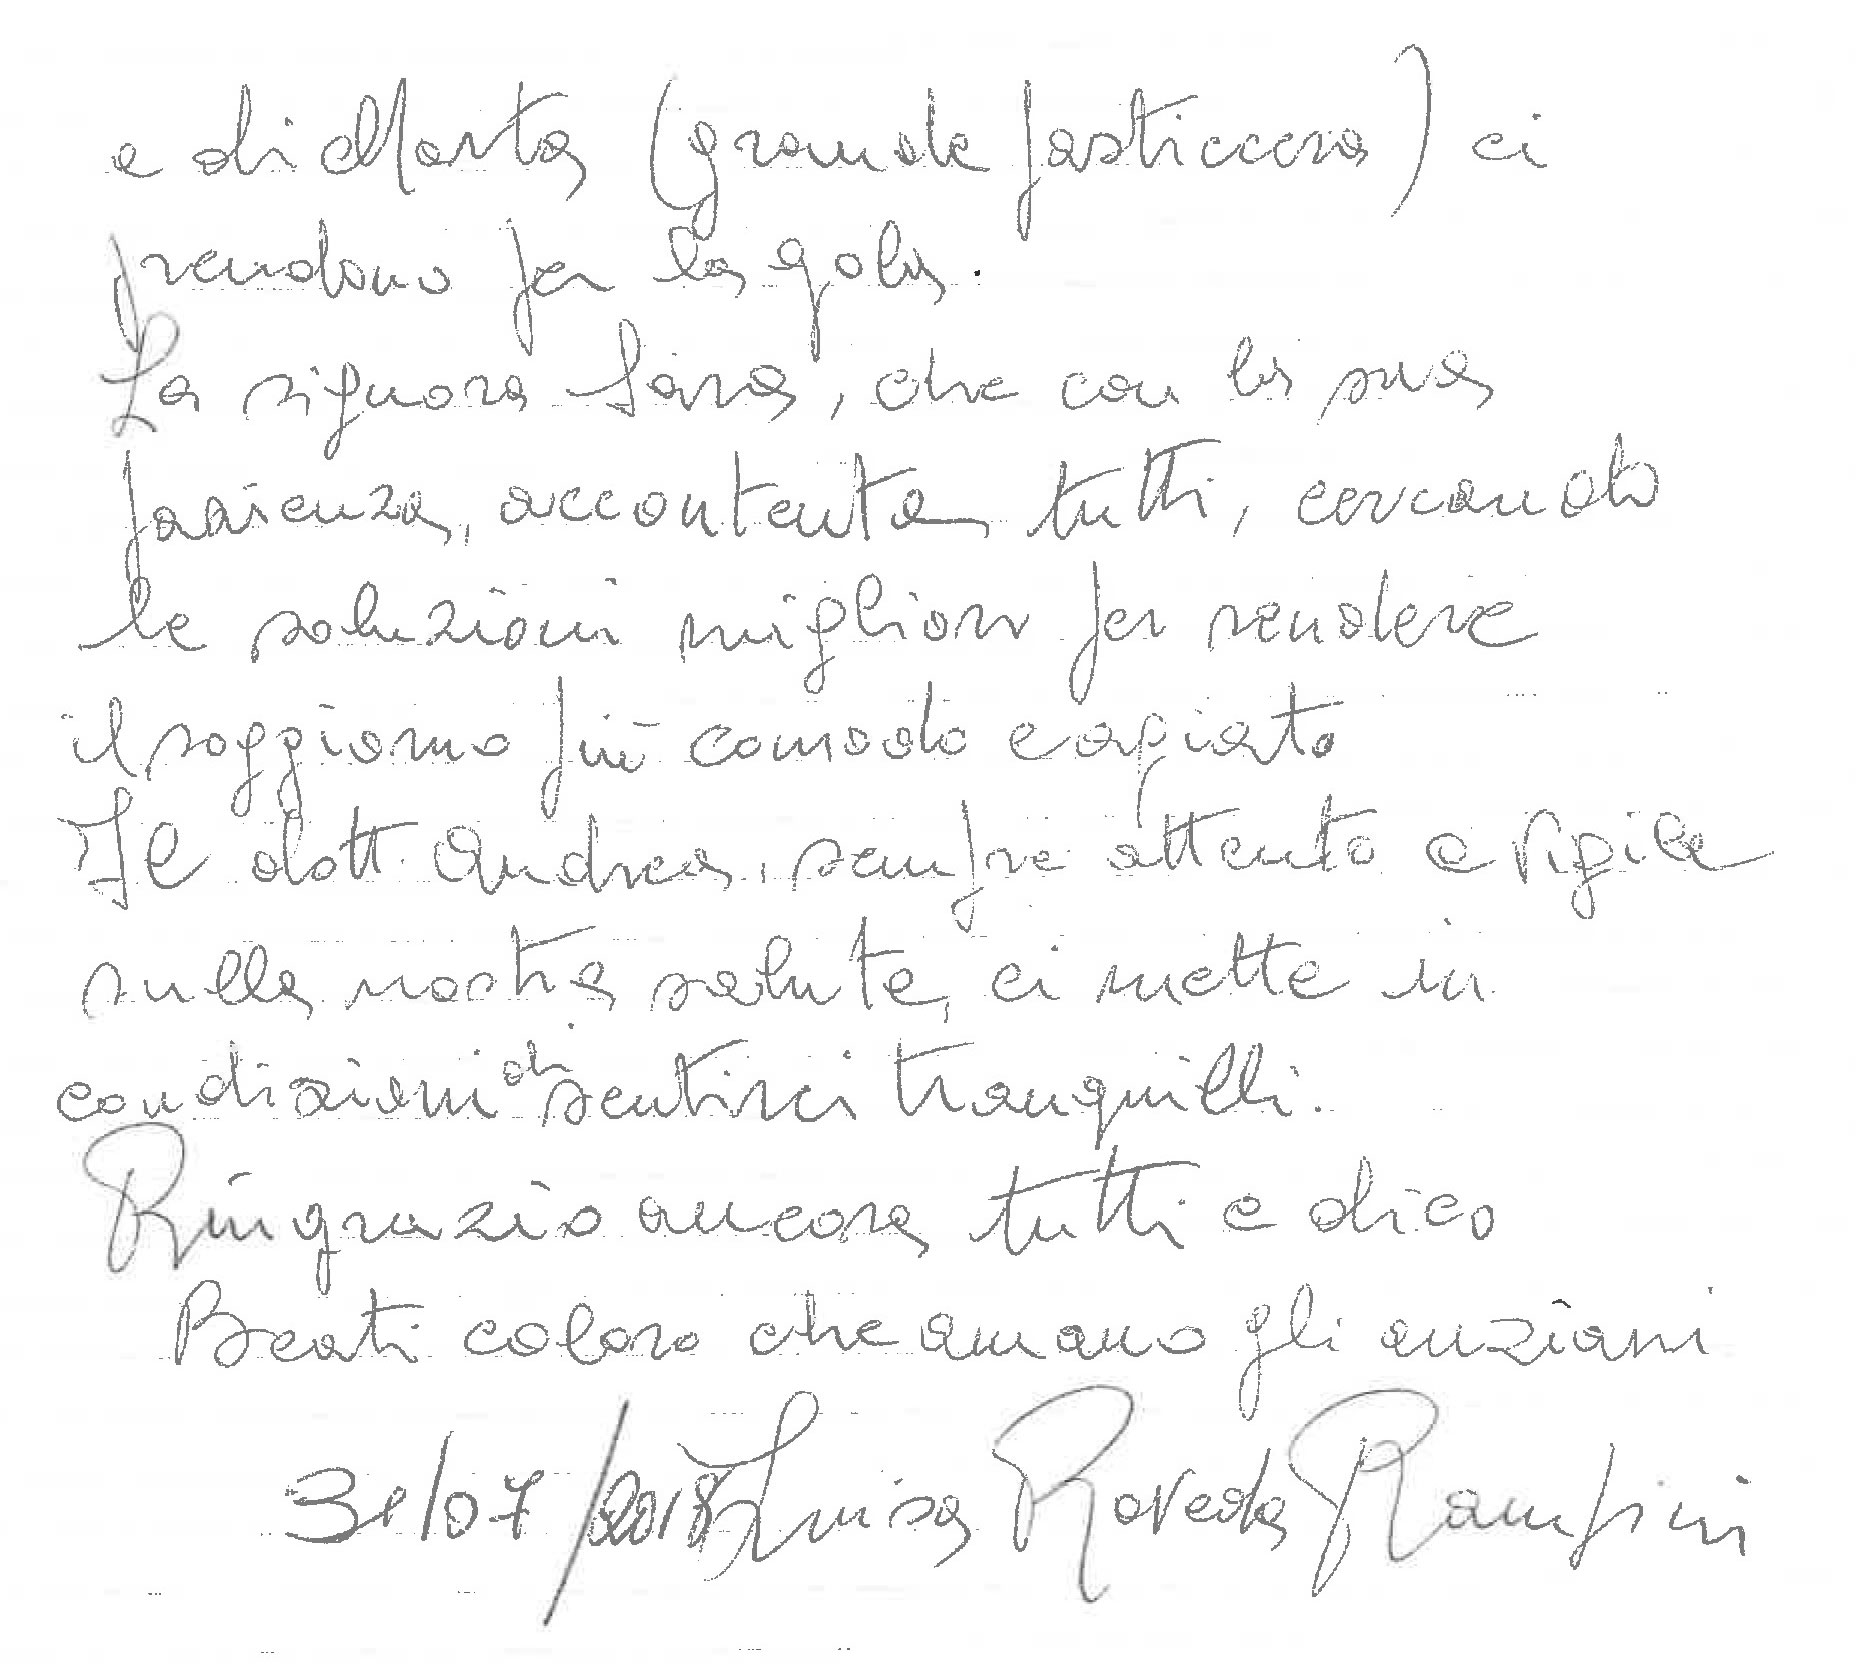 e di Marta (grande pasticcera) ci
prendono per la gola.
La signora Sara, che con la sua
pazienza, accontenta tutti, cercando
le soluzioni migliori per rendere
il soggiorno più comodo e agiato
Il dott. Andrea, sempre attento e vigile
sulla nostra salute, ci mette in
condizioni di sentirci tranquilli.
Ringrazio ancora tutti e dico
Beati coloro che amano gli anziani
31/07/2018 Luisa Roveda Rampini